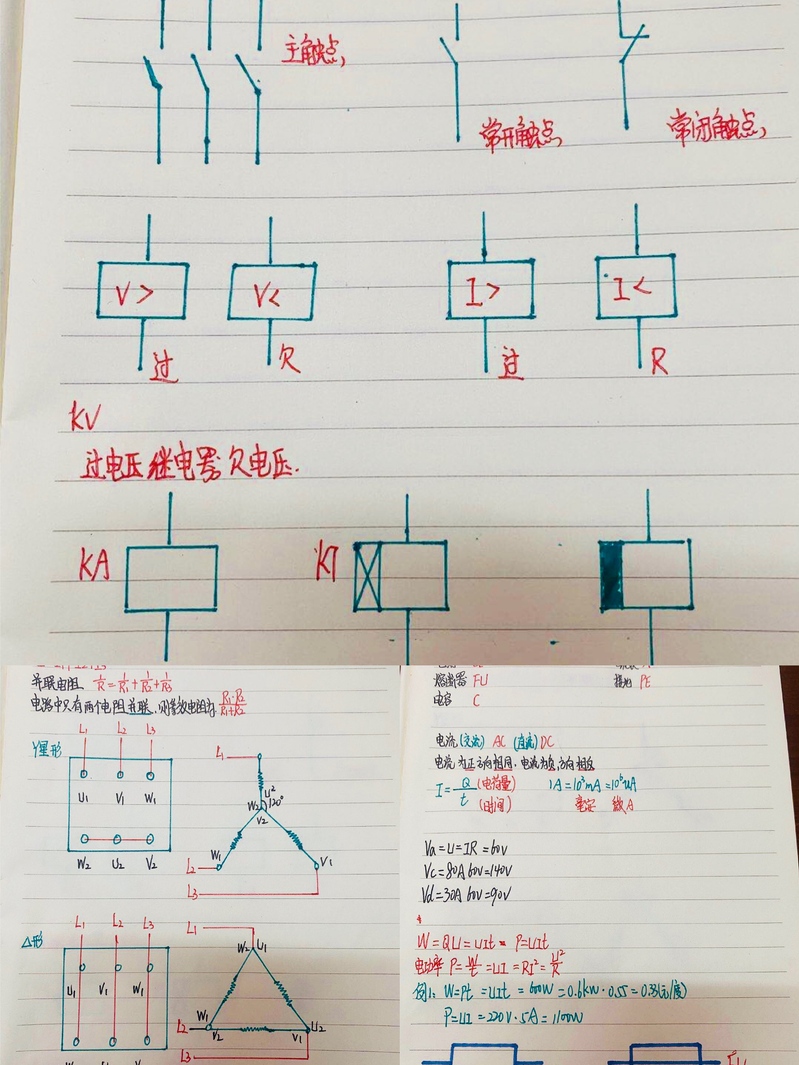 主触点,
常开触点,
常闭触点,
V> V< I> I<
过 欠 过 R
KV
过电压继电器 欠电压.
KA KT
并联电阻 1/R=1/R₁+1/R₂+1/R₃
电路中只有两个电阻并联,则等效电阻为 R₁·R₂/R₁+R₂
Y星形
L₁ L₂ L₃
U₁ V₁ W₁
W₂ U₂ V₂
L₁
U²
W₂ 120°
V₂
W₁ V₁
L₂
L₃
△形
L₁ L₂ L₃
U₁ V₁ W₁
L₁
W₂ U₁
W₁ U₂
L₂ V₂ V₁
L₃
熔断器 FU 接地 PE
电容 C
电流(交流) AC (直流) DC
I=Q/t (电荷量) (时间) 1A=10³mA=10⁶uA
毫安 微A
Va=U=IR=60V
Vc=80A 60V=140V
Vd=30A 60V=90V
W=QU=UIt= P=UIt
电功率 P=W/t=UI=RI²=U²/R
例1: W=Pt=UIt=600W=0.6kW·0.55=0.33(元/度)
P=UI=220V·5A=1100W